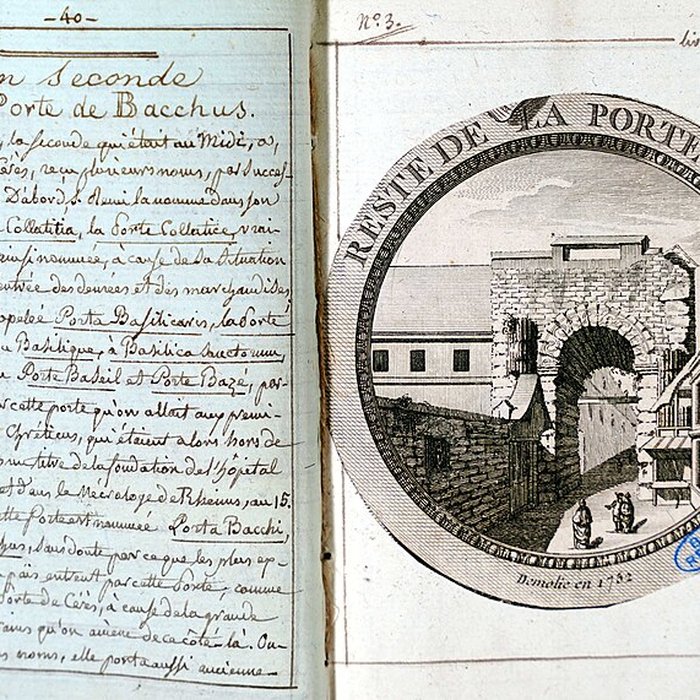 - 40 -
n seconde
Porte de Bacchus.
, la seconde qui était au Midi, a,
Cérès, reçu plusieurs noms, par succes-
D'abord St Remi la nomme dans son
Collatitia, la Porte Collatice, vrai
ainsi nommée, à cause de sa situation
entrée des denrées et des marchandises,
appelée Porta Basilicaris, la Porte
Basilique, à Basilica sanctorum,
Porte Baseil et Porte Bazé, par-
cette porte qu'on allait aux premi-
Chrétiens, qui étaient alors hors de
de la fondation de l'hôpital
et dans le Necrologe de Rheims, au 15.
cette Porte est nommée Porta Bacchi,
sans doute parceque les plus ep-
païs entrent par cette Porte, comme
Porte de Cérès, à cause de la grande
grains qu'on amène de ce côté-là. Ou-
ses noms, elle porta aussi ancienne-
N.° 3.
liv
RESTE DE LA PORTE
Demolie en 1752